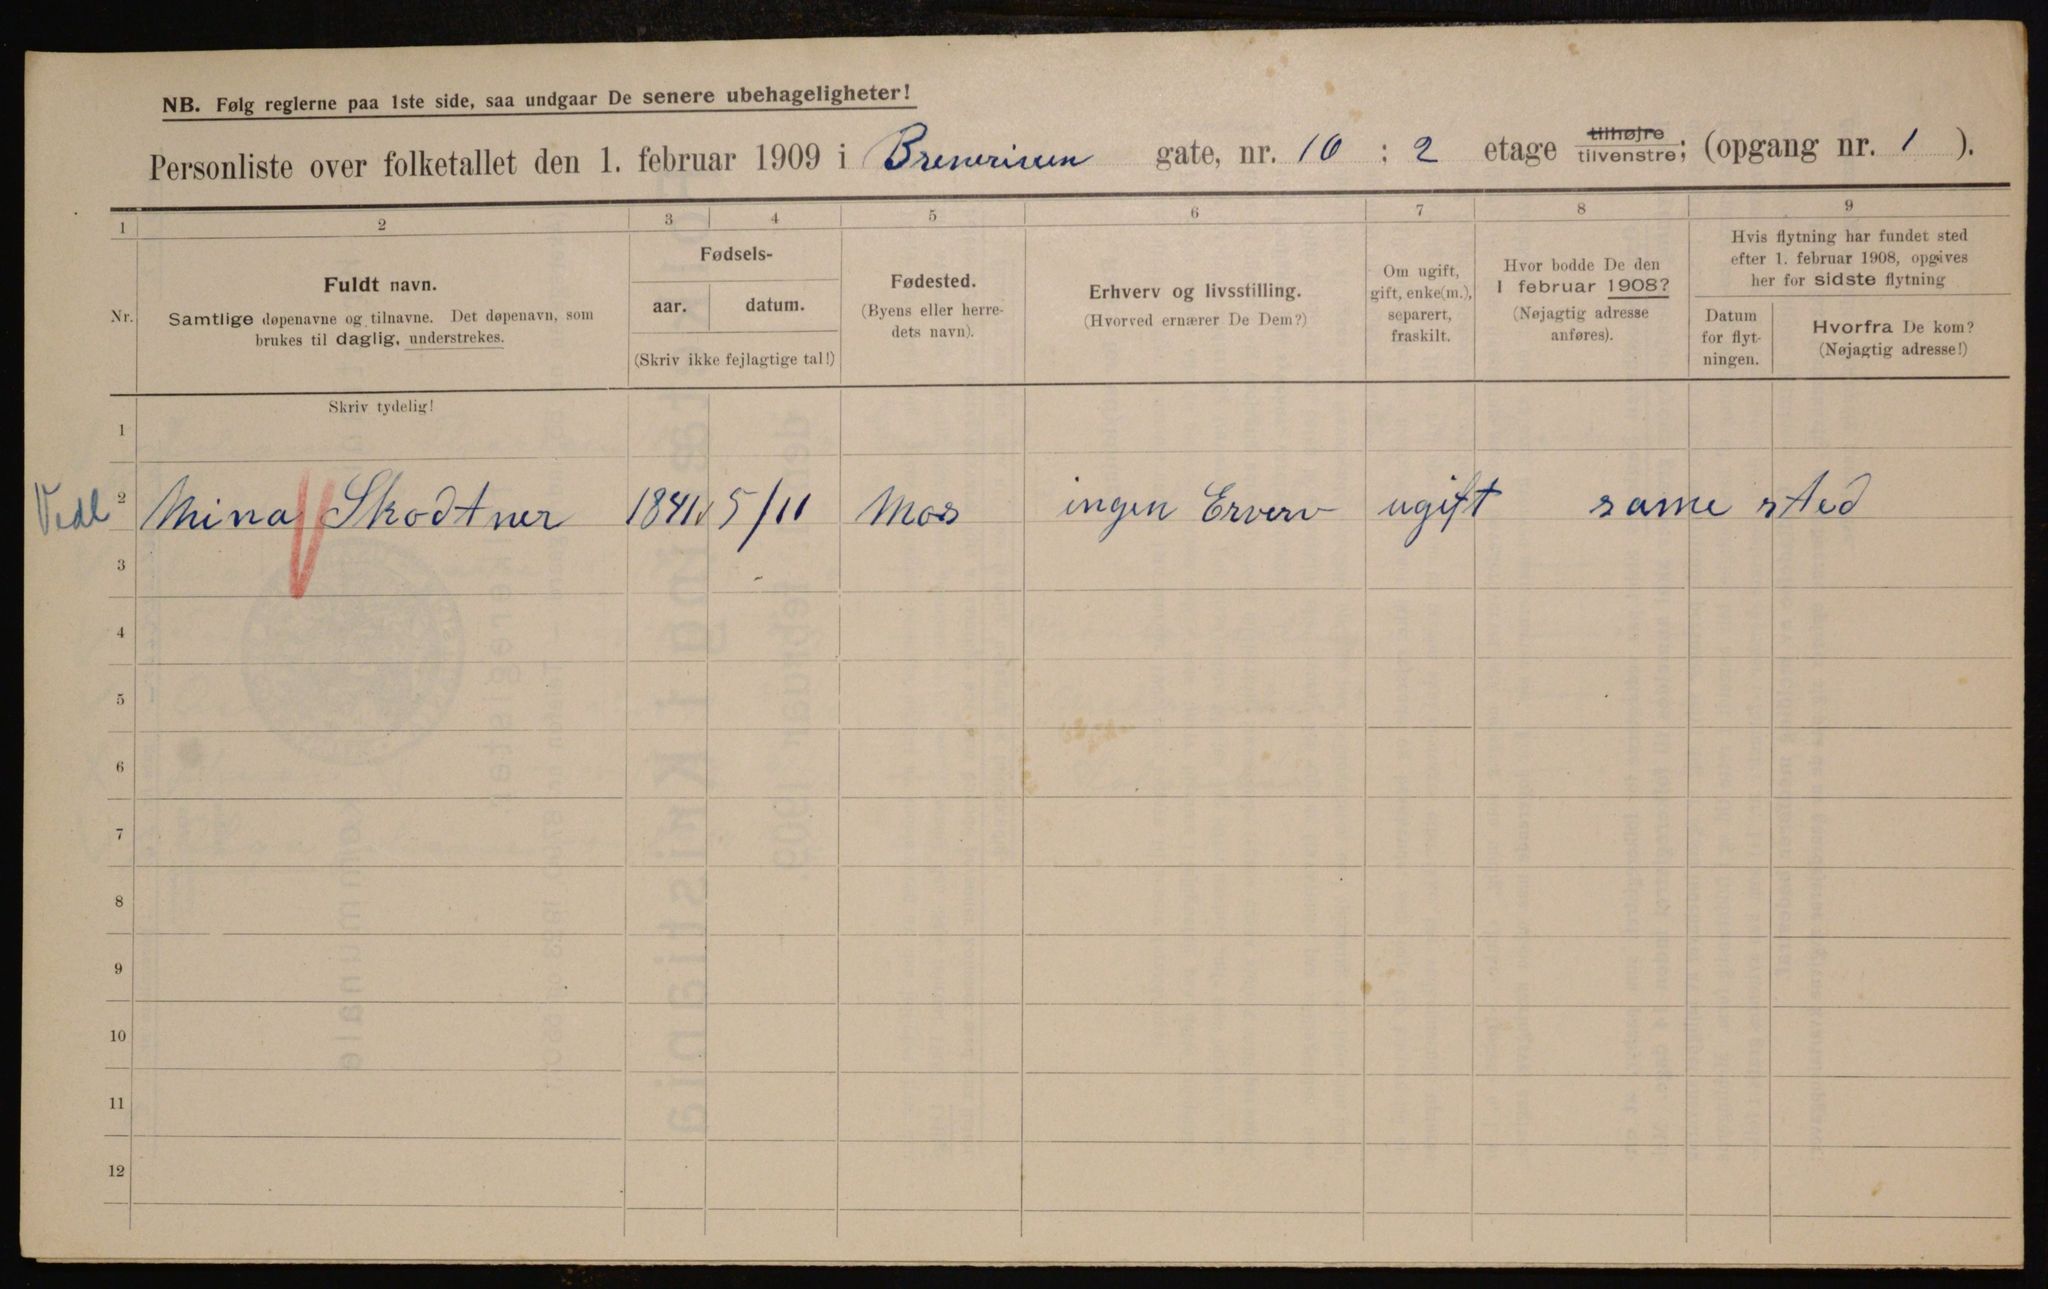 NB. Følg reglerne paa 1ste side, saa undgaar De senere ubehageligheter!
Personliste over folketallet den 1. februar 1909 i Brenerivein gate, nr. 10 : 2 etage tilhøjre tilvenstre; (opgang nr. 1 ).
1 2 3 4 5 6 7 8 9
Nr.
Fuldt navn.
Samtlige døpenavne og tilnavne. Det døpenavn, som
brukes til daglig, understrekes.
Skriv tydelig!
Fødsels-
aar. datum.
(Skriv ikke fejlagtige tal!)
Fødested.
(Byens eller herre-
dets navn).
Erhverv og livsstilling.
(Hvorved ernærer De Dem?)
Om ugift,
gift, enke(m.),
separert,
fraskilt.
Hvor bodde De den
1 februar 1908?
(Nøjagtig adresse
anføres).
Hvis flytning har fundet sted
efter 1. februar 1908, opgives
her for sidste flytning
Datum
for flyt-
ningen.
Hvorfra De kom?
(Nøjagtig adresse!)
1
Vedl 2 Mina Skodtner 1841 5/11 Mos ingen Erverv ugift same sted
3
4
5
6
7
8
9
10
11
12